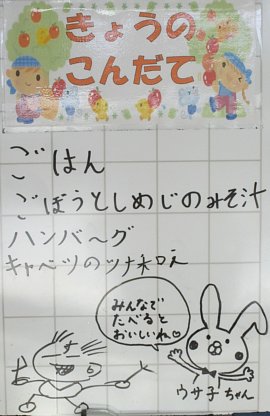 きょうの
こんだて
ごはん
ごぼうとしめじのみそ汁
ハンバ〜グ
キャベツのツナ和え
みんなで
たべると
おいしいね♡
ウサ子ちゃん